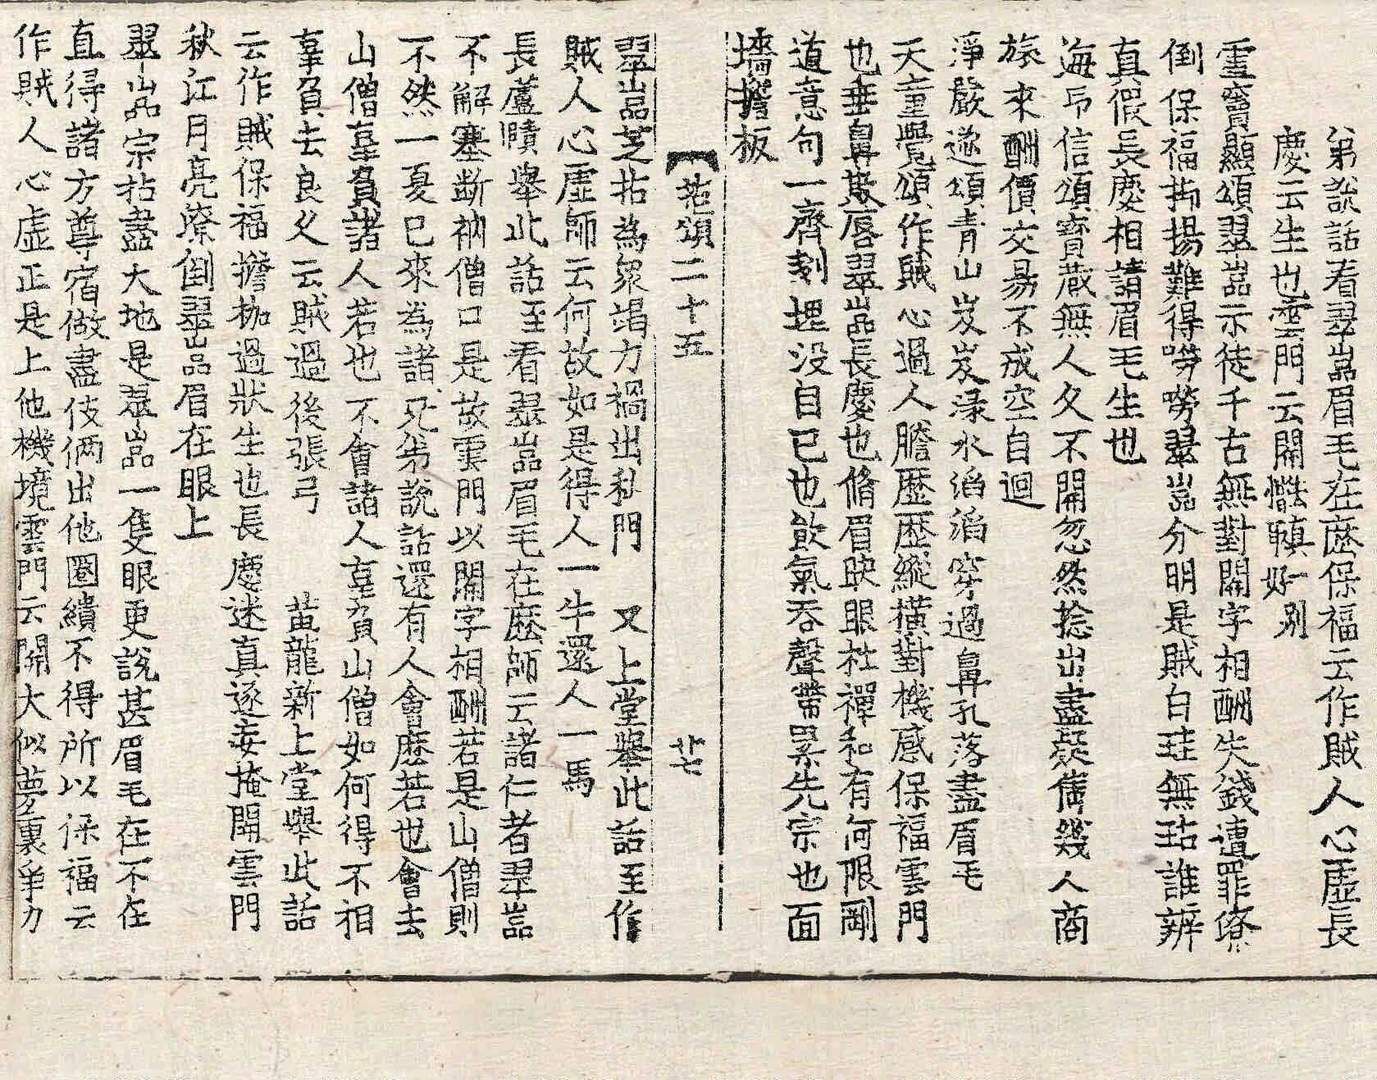 弟說話看翠嵓眉毛在麽保福云作賊人心虛長
慶云生也雲門云關 別
雪竇顯頌翠嵓示徒千古無對關字相酬失錢遭罪潦
倒保福抑揚難得嘮嘮翠嵓分明是賊白珪無玷誰辨
真假長慶相諳眉毛生也
海印信頌寶藏無人久不開忽然捴出盡疑儕幾人商
旅來酬價交易不成空自迴
淨嚴遂頌青山岌岌淥水滔滔穿過鼻孔落盡眉毛
天童覺頌作賊心過人膽歷歷縱橫對機感保福雲門
也垂鼻欺唇翠嵓長慶也脩眉映眼杜禪和有何限剛
道意句一齊剗埋沒自己也飮氣吞聲帶累先宗也面
墻擔板
拈頌二十五 廿七
翠嵓芝拈為衆竭力禍出私門 又上堂擧此話至作
賊人心虛師云何故如是得人一牛還人一馬
長蘆賾擧此話至看翠嵓眉毛在麽師云諸仁者翠嵓
不解塞斷衲僧口是故雲門以關字相酬若是山僧則
不然一夏已來為諸兄弟說話還有人會麽若也會去
山僧辜負諸人若也不會諸人辜負山僧如何得不相
辜負去良久云賊過後張弓 黃龍新上堂擧此話
云作賊保福擔枷過狀生也長慶迷真逐妄掩開雲門
秋江月亮潦倒翠嵓眉在眼上
翠嵓宗拈盡大地是翠嵓一隻眼更說甚眉毛在不在
直得諸方尊宿做盡伎倆出他圈繢不得所以保福云
作賊人心虛正是上他機境雲門云關大似夢裏爭力